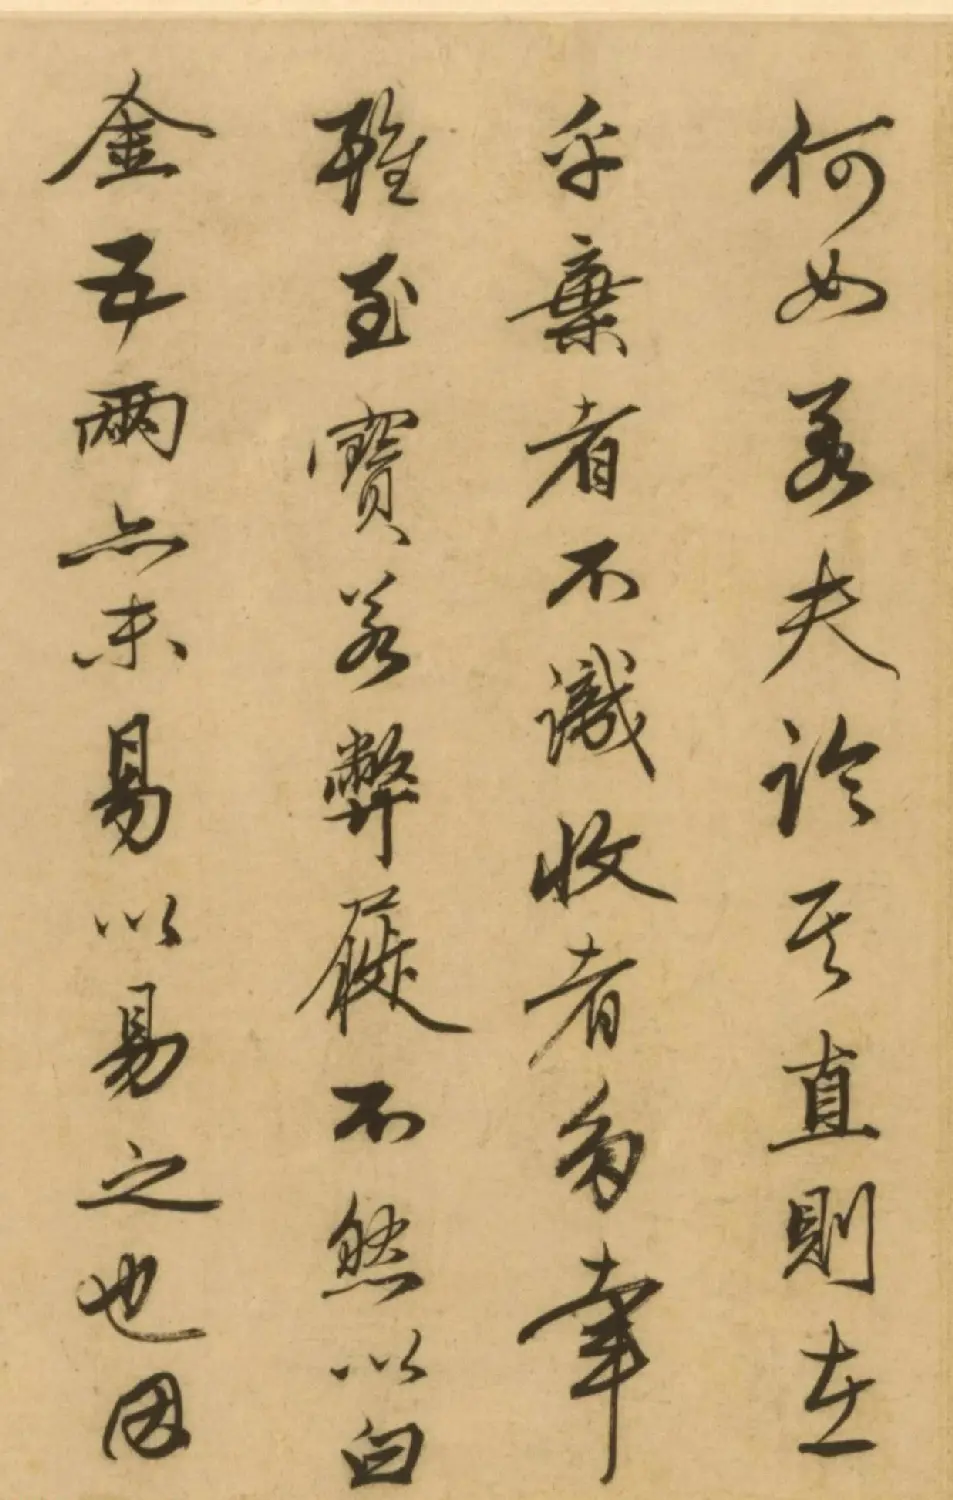 何如若夫論其直則在
乎棄者不識收者多幸
雖至寶若弊屣不然以白
金五兩亦未易以易之也因